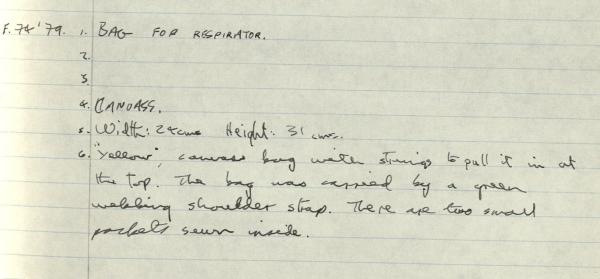 F.74'79. 1. BAG FOR RESPIRATOR.
2.
3.
4. CANVASS.
5. Width: 24cms Height: 31 cms.
6. "Yellow", canvass bag with strings to pull it in at
the top. The bag was carried by a green
webbing shoulder strap. There are two small
pockets sewn inside.